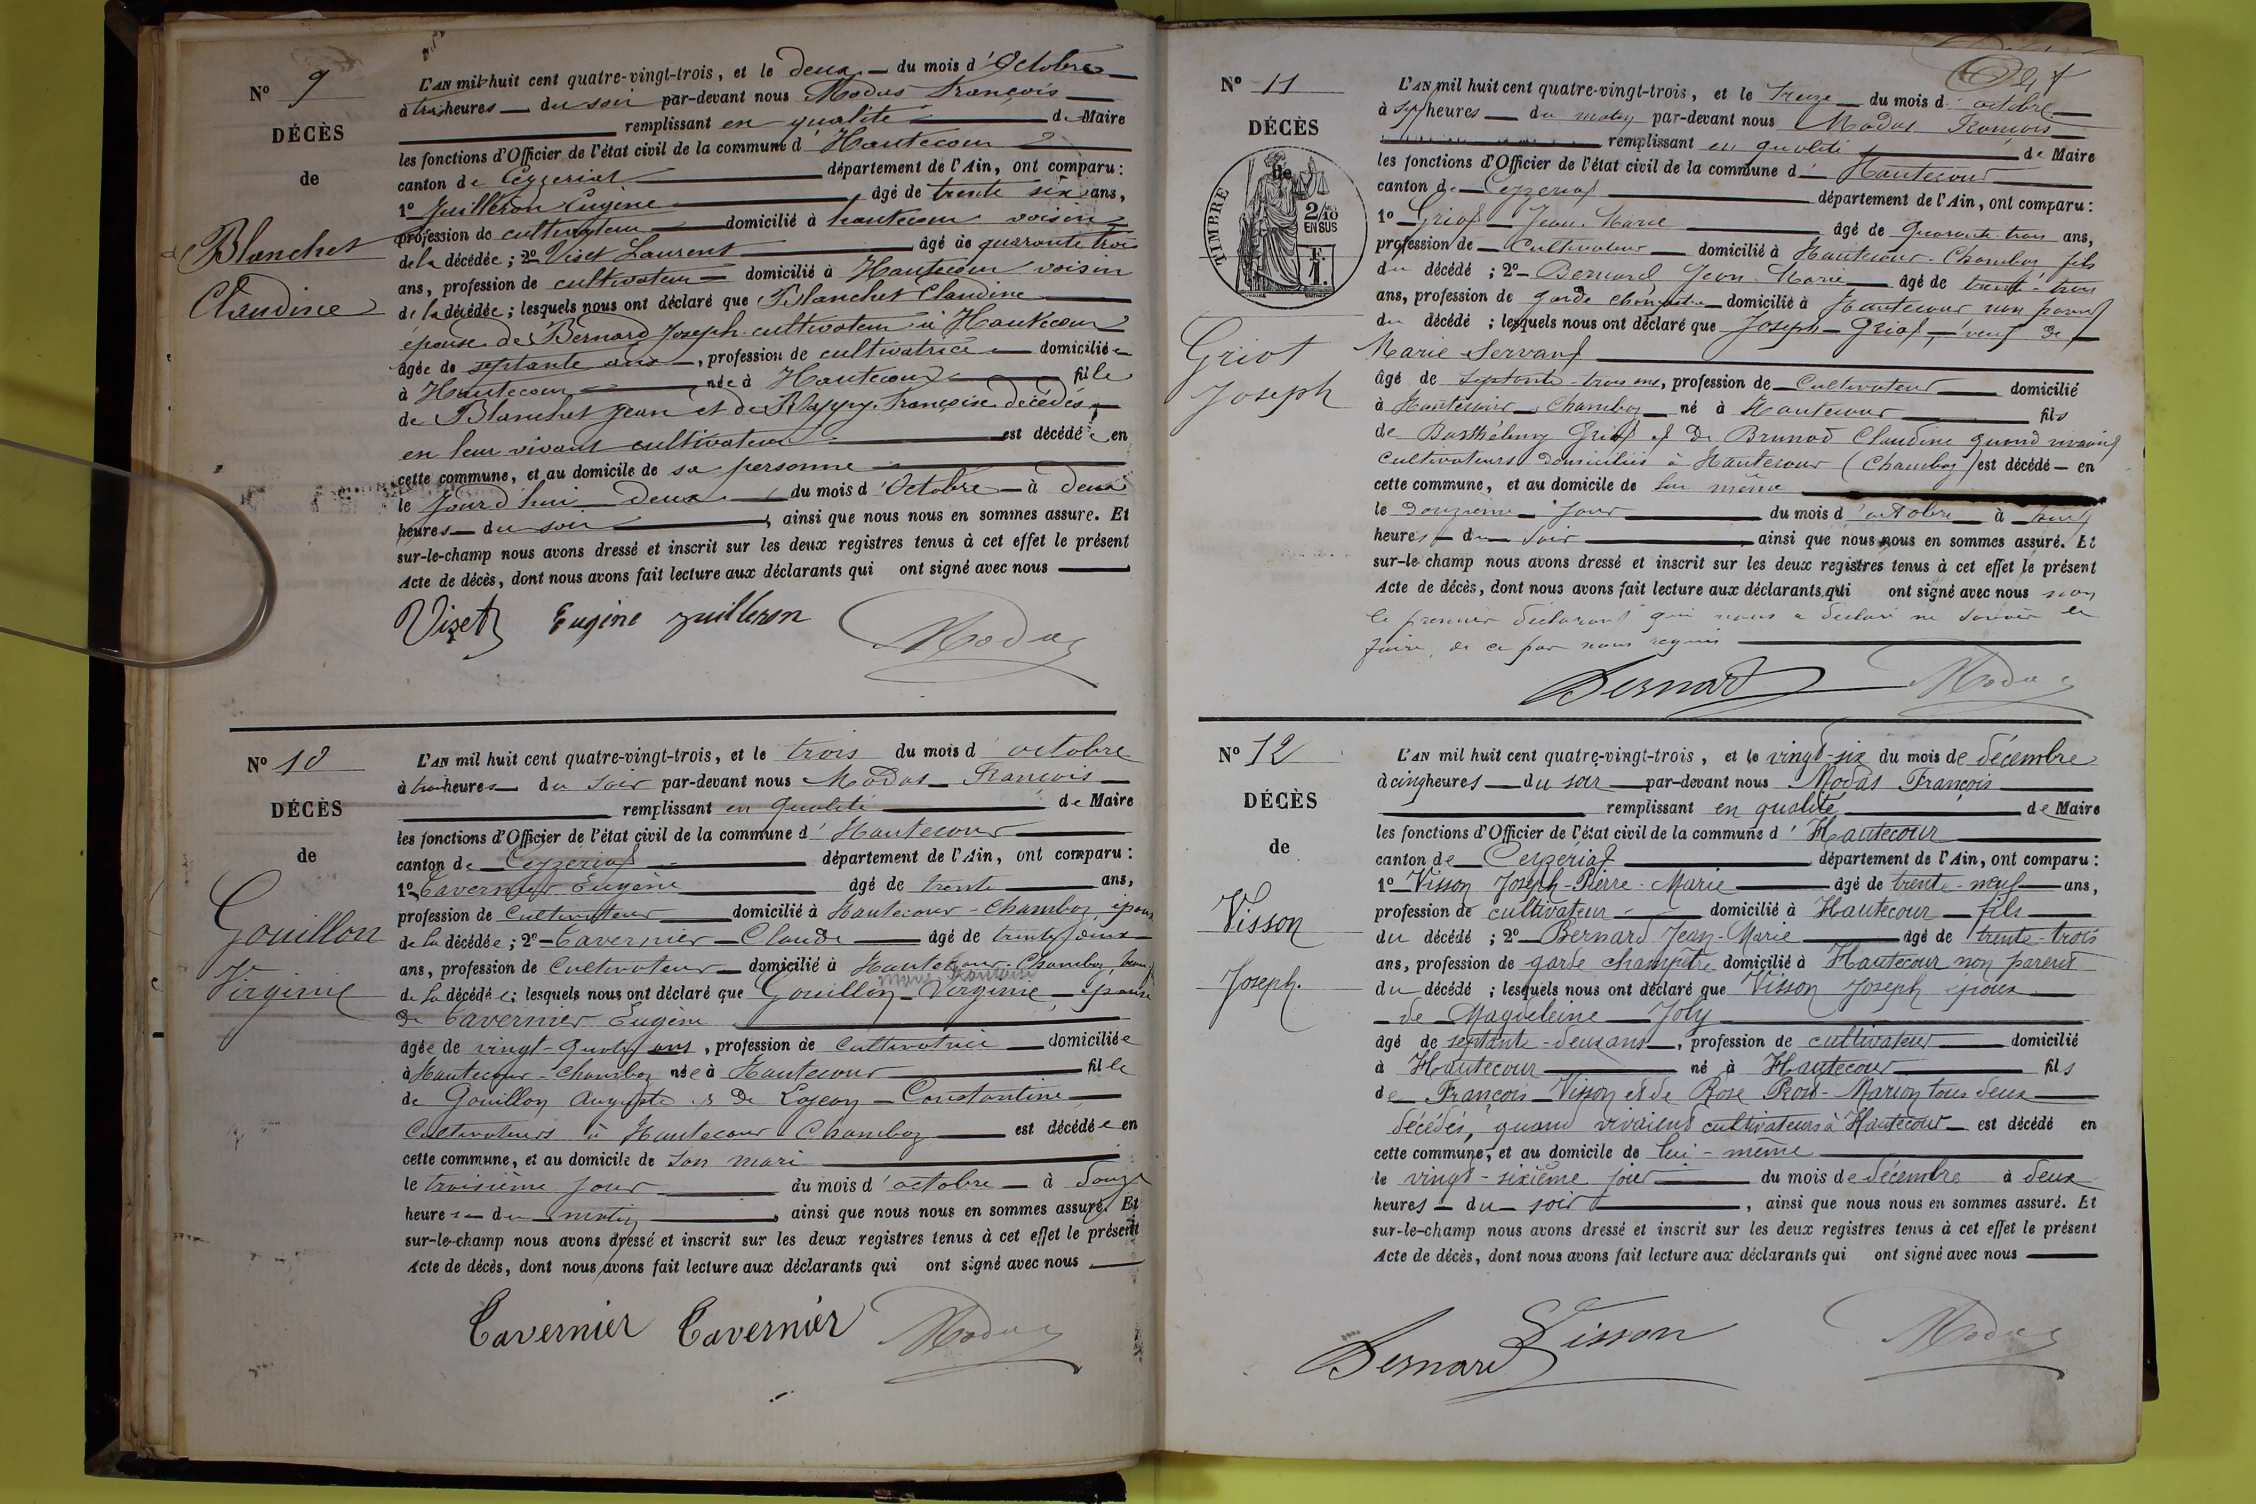 N° 9
DÉCÈS
de
Blanchet
Claudine
L'AN mil huit cent quatre-vingt-trois, et le deux du mois d'Octobre
à trois heures du soir par-devant nous Modas François
remplissant en qualité de Maire
les fonctions d'Officier de l'état civil de la commune d'Hautecour
canton de Ceyzeriat département de l'Ain, ont comparu :
1° Juilleron Eugène âgé de trente six ans,
profession de cultivateur domicilié à hautecour voisin
de la décédée ; 2° Vizet Laurent âgé de quarante trois
ans, profession de cultivateur domicilié à Hautecour voisin
de la décédée ; lesquels nous ont déclaré que Blanchet Claudine
épouse de Bernard Joseph cultivateur à Hautecour
âgée de septante ans, profession de cultivatrice domiciliée
à Hautecour née à Hautecour fille
de Blanchet Jean et de Françoise décédés
en leur vivant cultivateurs est décédée en
cette commune, et au domicile de sa personne
le jourd'hui deux du mois d'Octobre à deux
heures du soir, ainsi que nous nous en sommes assuré. Et
sur-le-champ nous avons dressé et inscrit sur les deux registres tenus à cet effet le présent
Acte de décès, dont nous avons fait lecture aux déclarants qui ont signé avec nous
Vizet Eugène Juilleron Modas
N° 10
DÉCÈS
de
Gouillon
Virginie
L'AN mil huit cent quatre-vingt-trois, et le trois du mois d'octobre
à trois heures du soir par-devant nous Modas François
remplissant en qualité de Maire
les fonctions d'Officier de l'état civil de la commune d'Hautecour
canton de Ceyzeriat département de l'Ain, ont comparu :
1° Tavernier Eugène âgé de trente ans,
profession de Cultivateur domicilié à Hautecour-Chamboz, époux
de la décédée ; 2° Tavernier Claude âgé de trente deux
ans, profession de Cultivateur domicilié à Hautecour-Chamboz,
Marie Françoise
de la décédée ; lesquels nous ont déclaré que Gouillon Virginie épouse
de Tavernier Eugène
âgée de vingt-quatre ans, profession de Cultivatrice domiciliée
à Hautecour-Chamboz née à Hautecour fille
de Gouillon Auguste et de Constantine
Cultivateurs à Hautecour Chamboz est décédée en
cette commune, et au domicile de son mari
le troisième jour du mois d'octobre à douze
heures du matin, ainsi que nous nous en sommes assuré. Et
sur-le-champ nous avons dressé et inscrit sur les deux registres tenus à cet effet le présent
Acte de décès, dont nous avons fait lecture aux déclarants qui ont signé avec nous
Tavernier Tavernier Modas
N° 11
DÉCÈS
de
TIMBRE
2/10
EN SUS
Griot
Joseph
L'AN mil huit cent quatre-vingt-trois, et le treize du mois d'octobre
à sept heures du matin par-devant nous Modas François
remplissant en qualité de Maire
les fonctions d'Officier de l'état civil de la commune d'Hautecour
canton de Ceyzeriat département de l'Ain, ont comparu :
1° Griot Jean Marie âgé de quarante-trois ans,
profession de Cultivateur domicilié à Hautecour-Chamboz fils
du décédé ; 2° Bernard Jean Marie âgé de trente-trois
ans, profession de garde champêtre domicilié à Hautecour non parent
du décédé ; lesquels nous ont déclaré que Joseph Griot, veuf de
Marie Servant
âgé de septante-trois ans, profession de Cultivateur domicilié
à Hautecour Chamboz né à Hautecour fils
de Barthélemy Griot et de Brunod Claudine quand vivaient
cultivateurs domiciliés à Hautecour (Chamboz) est décédé en
cette commune, et au domicile de lui même
le douzième jour du mois d'octobre à
heures du soir, ainsi que nous nous en sommes assuré. Et
sur-le-champ nous avons dressé et inscrit sur les deux registres tenus à cet effet le présent
Acte de décès, dont nous avons fait lecture aux déclarants qui ont signé avec nous non
le premier déclarant qui nous a déclaré ne savoir le
faire, de ce par nous requis
Bernard Modas
N° 12
DÉCÈS
de
Visson
Joseph.
L'AN mil huit cent quatre-vingt-trois, et le vingt-six du mois de décembre
à cinq heures du soir par-devant nous Modas François
remplissant en qualité de Maire
les fonctions d'Officier de l'état civil de la commune d'Hautecour
canton de Ceyzériat département de l'Ain, ont comparu :
1° Visson Joseph-Pierre-Marie âgé de trente-neuf ans,
profession de cultivateur domicilié à Hautecour fils
du décédé ; 2° Bernard Jean-Marie âgé de trente-trois
ans, profession de garde champêtre domicilié à Hautecour non parent
du décédé ; lesquels nous ont déclaré que Visson Joseph époux
de Magdeleine Joly
âgé de septante-deux ans, profession de cultivateur domicilié
à Hautecour né à Hautecour fils
de François Visson et de Rose Marion tous deux
décédés, quand vivaient cultivateurs à Hautecour est décédé en
cette commune, et au domicile de lui-même
le vingt-sixième jour du mois de décembre à deux
heures du soir, ainsi que nous nous en sommes assuré. Et
sur-le-champ nous avons dressé et inscrit sur les deux registres tenus à cet effet le présent
Acte de décès, dont nous avons fait lecture aux déclarants qui ont signé avec nous
Bernard Visson Modas